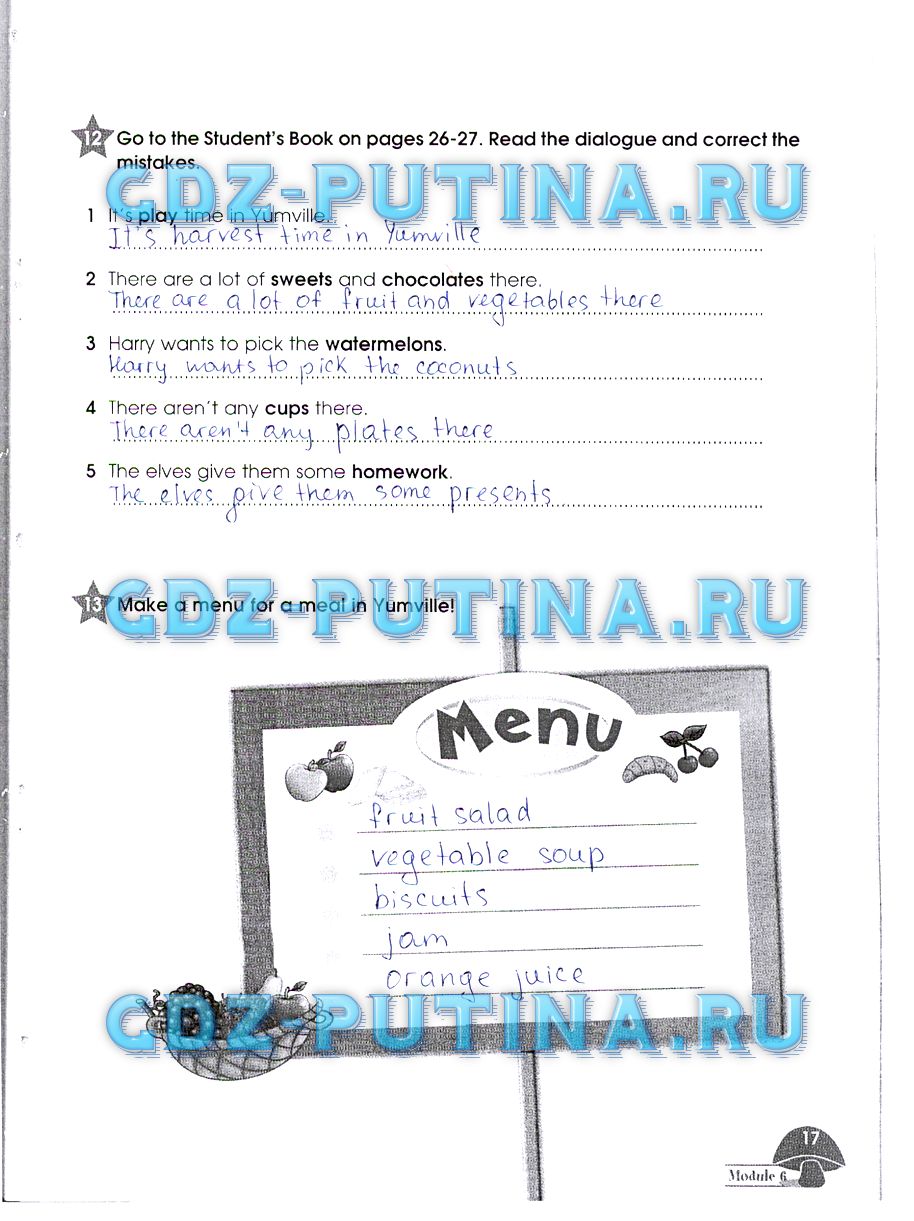 12 Go to the Student's Book on pages 26-27. Read the dialogue and correct the
mistakes.
GDZ-PUTINA.RU
1 It's play time in Yumville.
It's harvest time in Yumville
2 There are a lot of sweets and chocolates there.
There are a lot of fruit and vegetables there
3 Harry wants to pick the watermelons.
Harry wants to pick the coconuts
4 There aren't any cups there.
There aren't any plates there
5 The elves give them some homework.
The elves give them some presents
13 Make a menu for a meal in Yumville!
GDZ-PUTINA.RU
Menu
fruit salad
vegetable soup
biscuits
jam
orange juice
GDZ-PUTINA.RU
17
Module 6